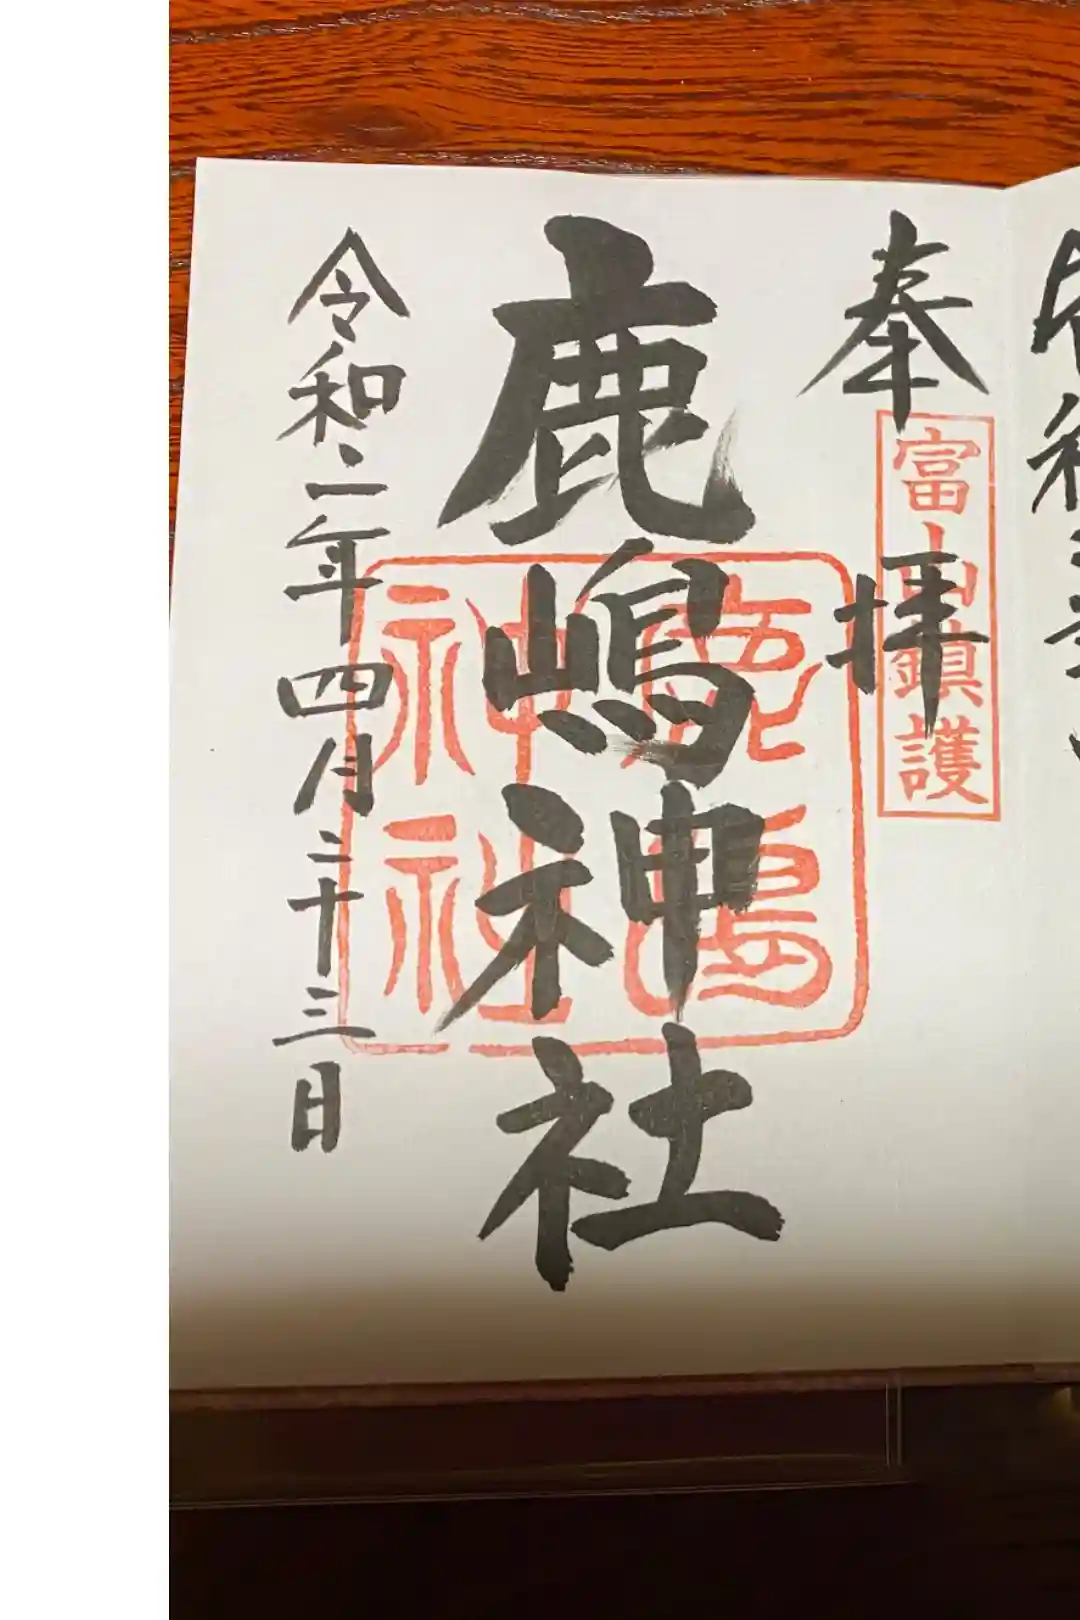 奉拝
富士山鎮護
鹿嶋神社
鹿嶋
神社
令和二年四月二十三日